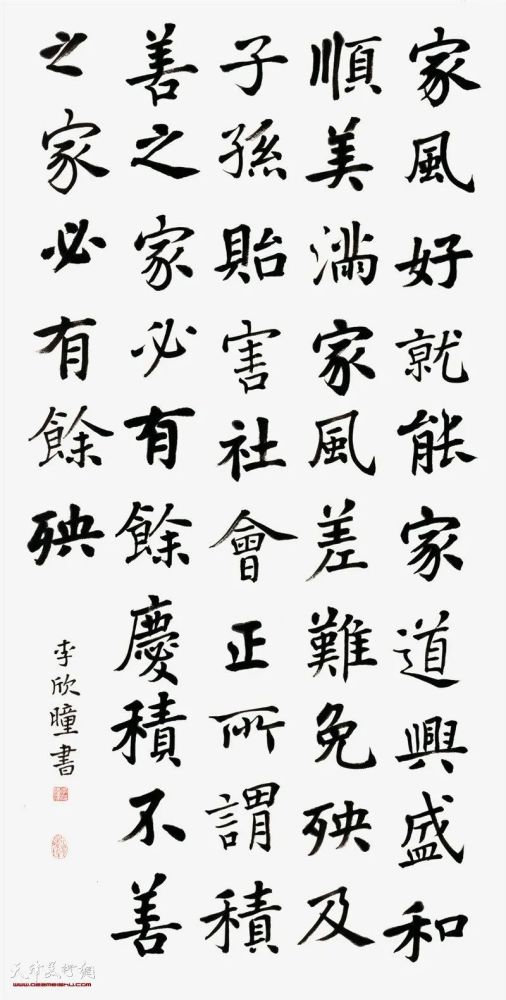 家風好就能家道興盛和
順美滿家風差難免殃及
子孫貽害社會正所謂積
善之家必有餘慶積不善
之家必有餘殃
李欣曈書
天津美術網
www.022meishu.com